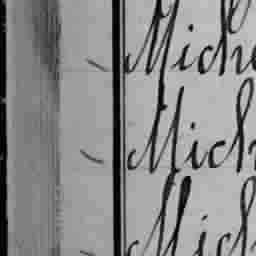 Miche
Mich
Mich